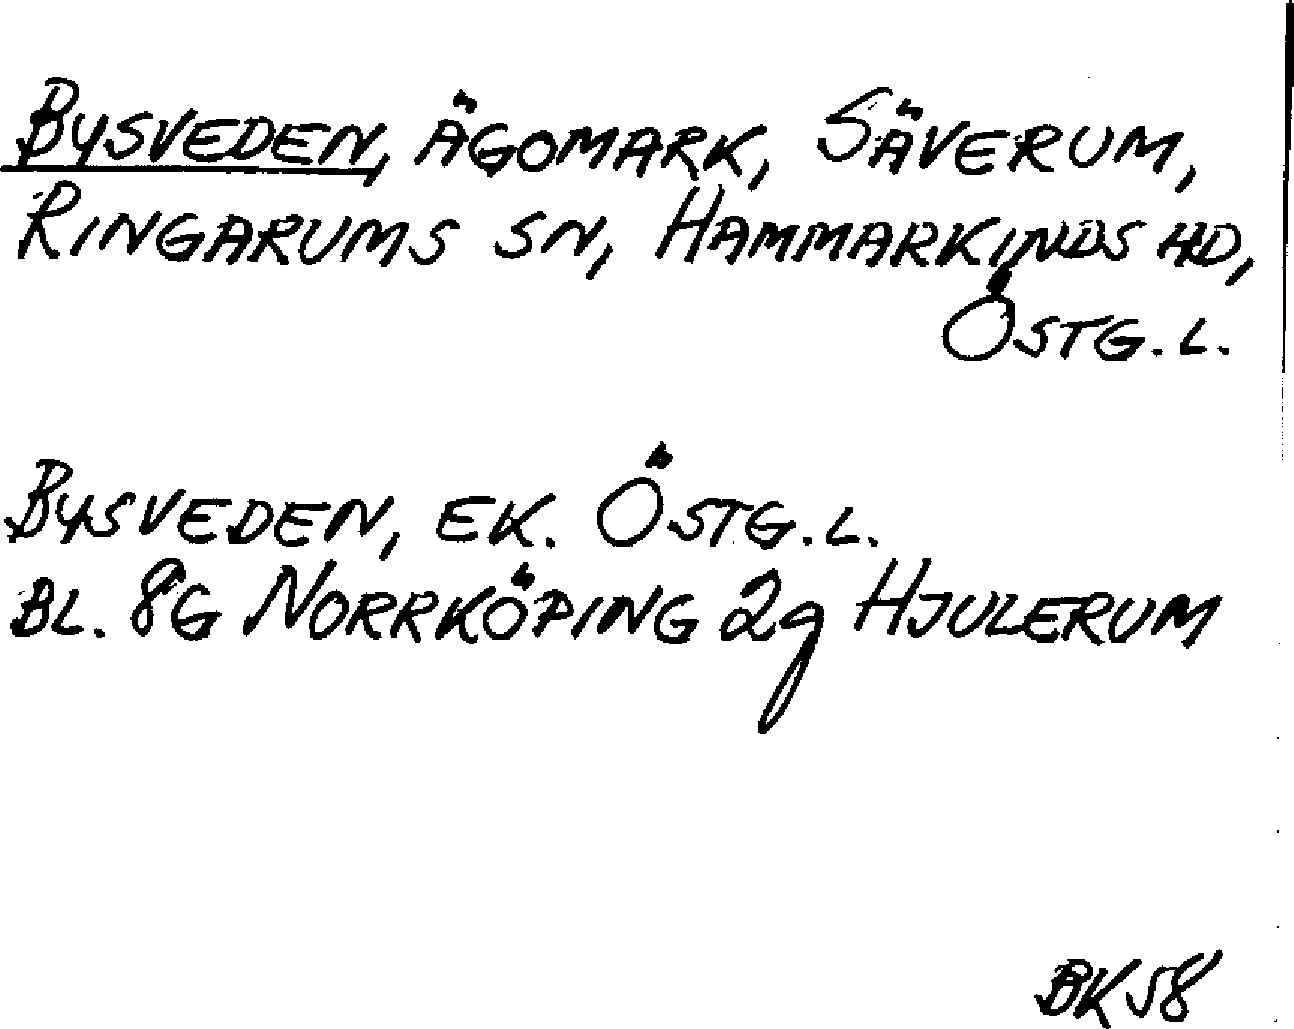 BYSVEDEN, ÄGOMARK, SÄVERUM,
RINGARUMS SN, HAMMARKINDS HD,
ÖSTG. L.
BYSVEDEN, EK. ÖSTG. L.
BL. 8G NORRKÖPING 2g HJULERUM
BK 58